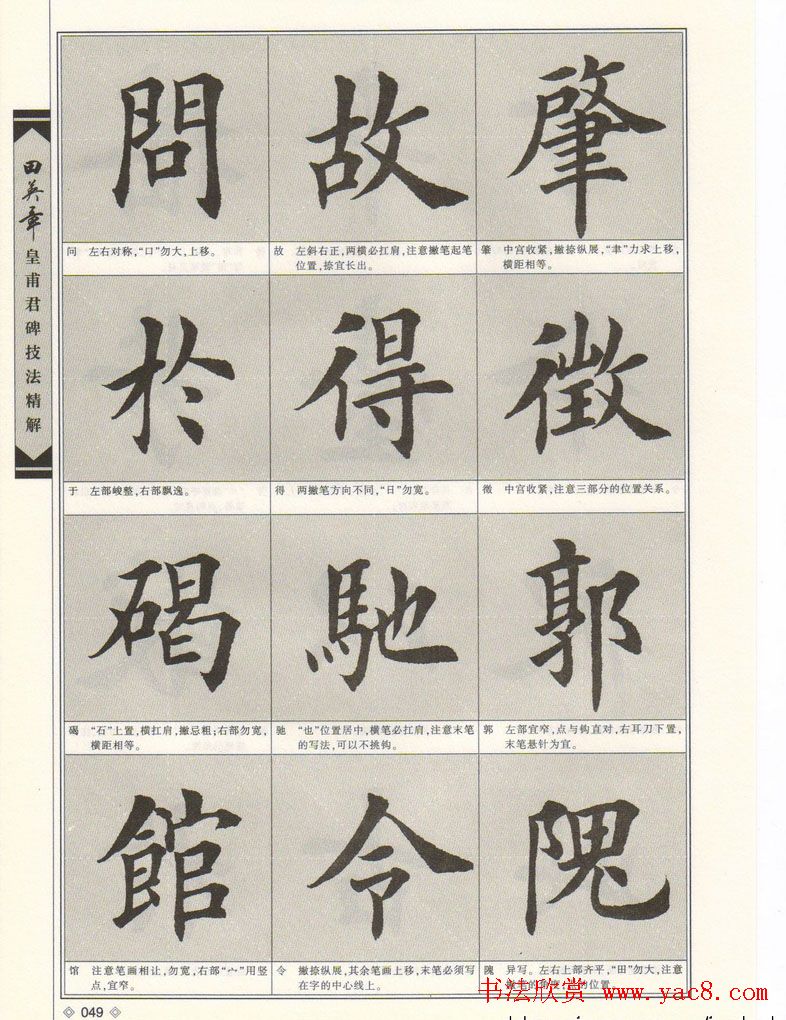 田英章
皇甫君碑技法精解
問
故
肇
问 左右对称，“口”勿大，上移。
故 左斜右正，两横必扛肩，注意撇笔起笔
位置，捺宜长出。
肇 中宫收紧，撇捺纵展，“聿”力求上移，
横距相等。
於
得
徵
于 左部峻整，右部飘逸。
得 两撇笔方向不同，“日”勿宽。
徵 中宫收紧，注意三部分的位置关系。
碣
馳
郭
碣 “石”上置，横扛肩，撇忌粗；右部勿宽，
横距相等。
驰 “也”位置居中，横笔必扛肩，注意末笔
的写法，可以不挑钩。
郭 左部宜窄，点与钩直对，右耳刀下置，
末笔悬针为宜。
館
令
隗
馆 注意笔画相让，勿宽，右部“宀”用竖
点，宜窄。
令 撇捺纵展，其余笔画上移，末笔必须写
在字的中心线上。
隗 异写。左右上部齐平，“田”勿大，注意
位置。
书法欣赏 www.yac8.com
049